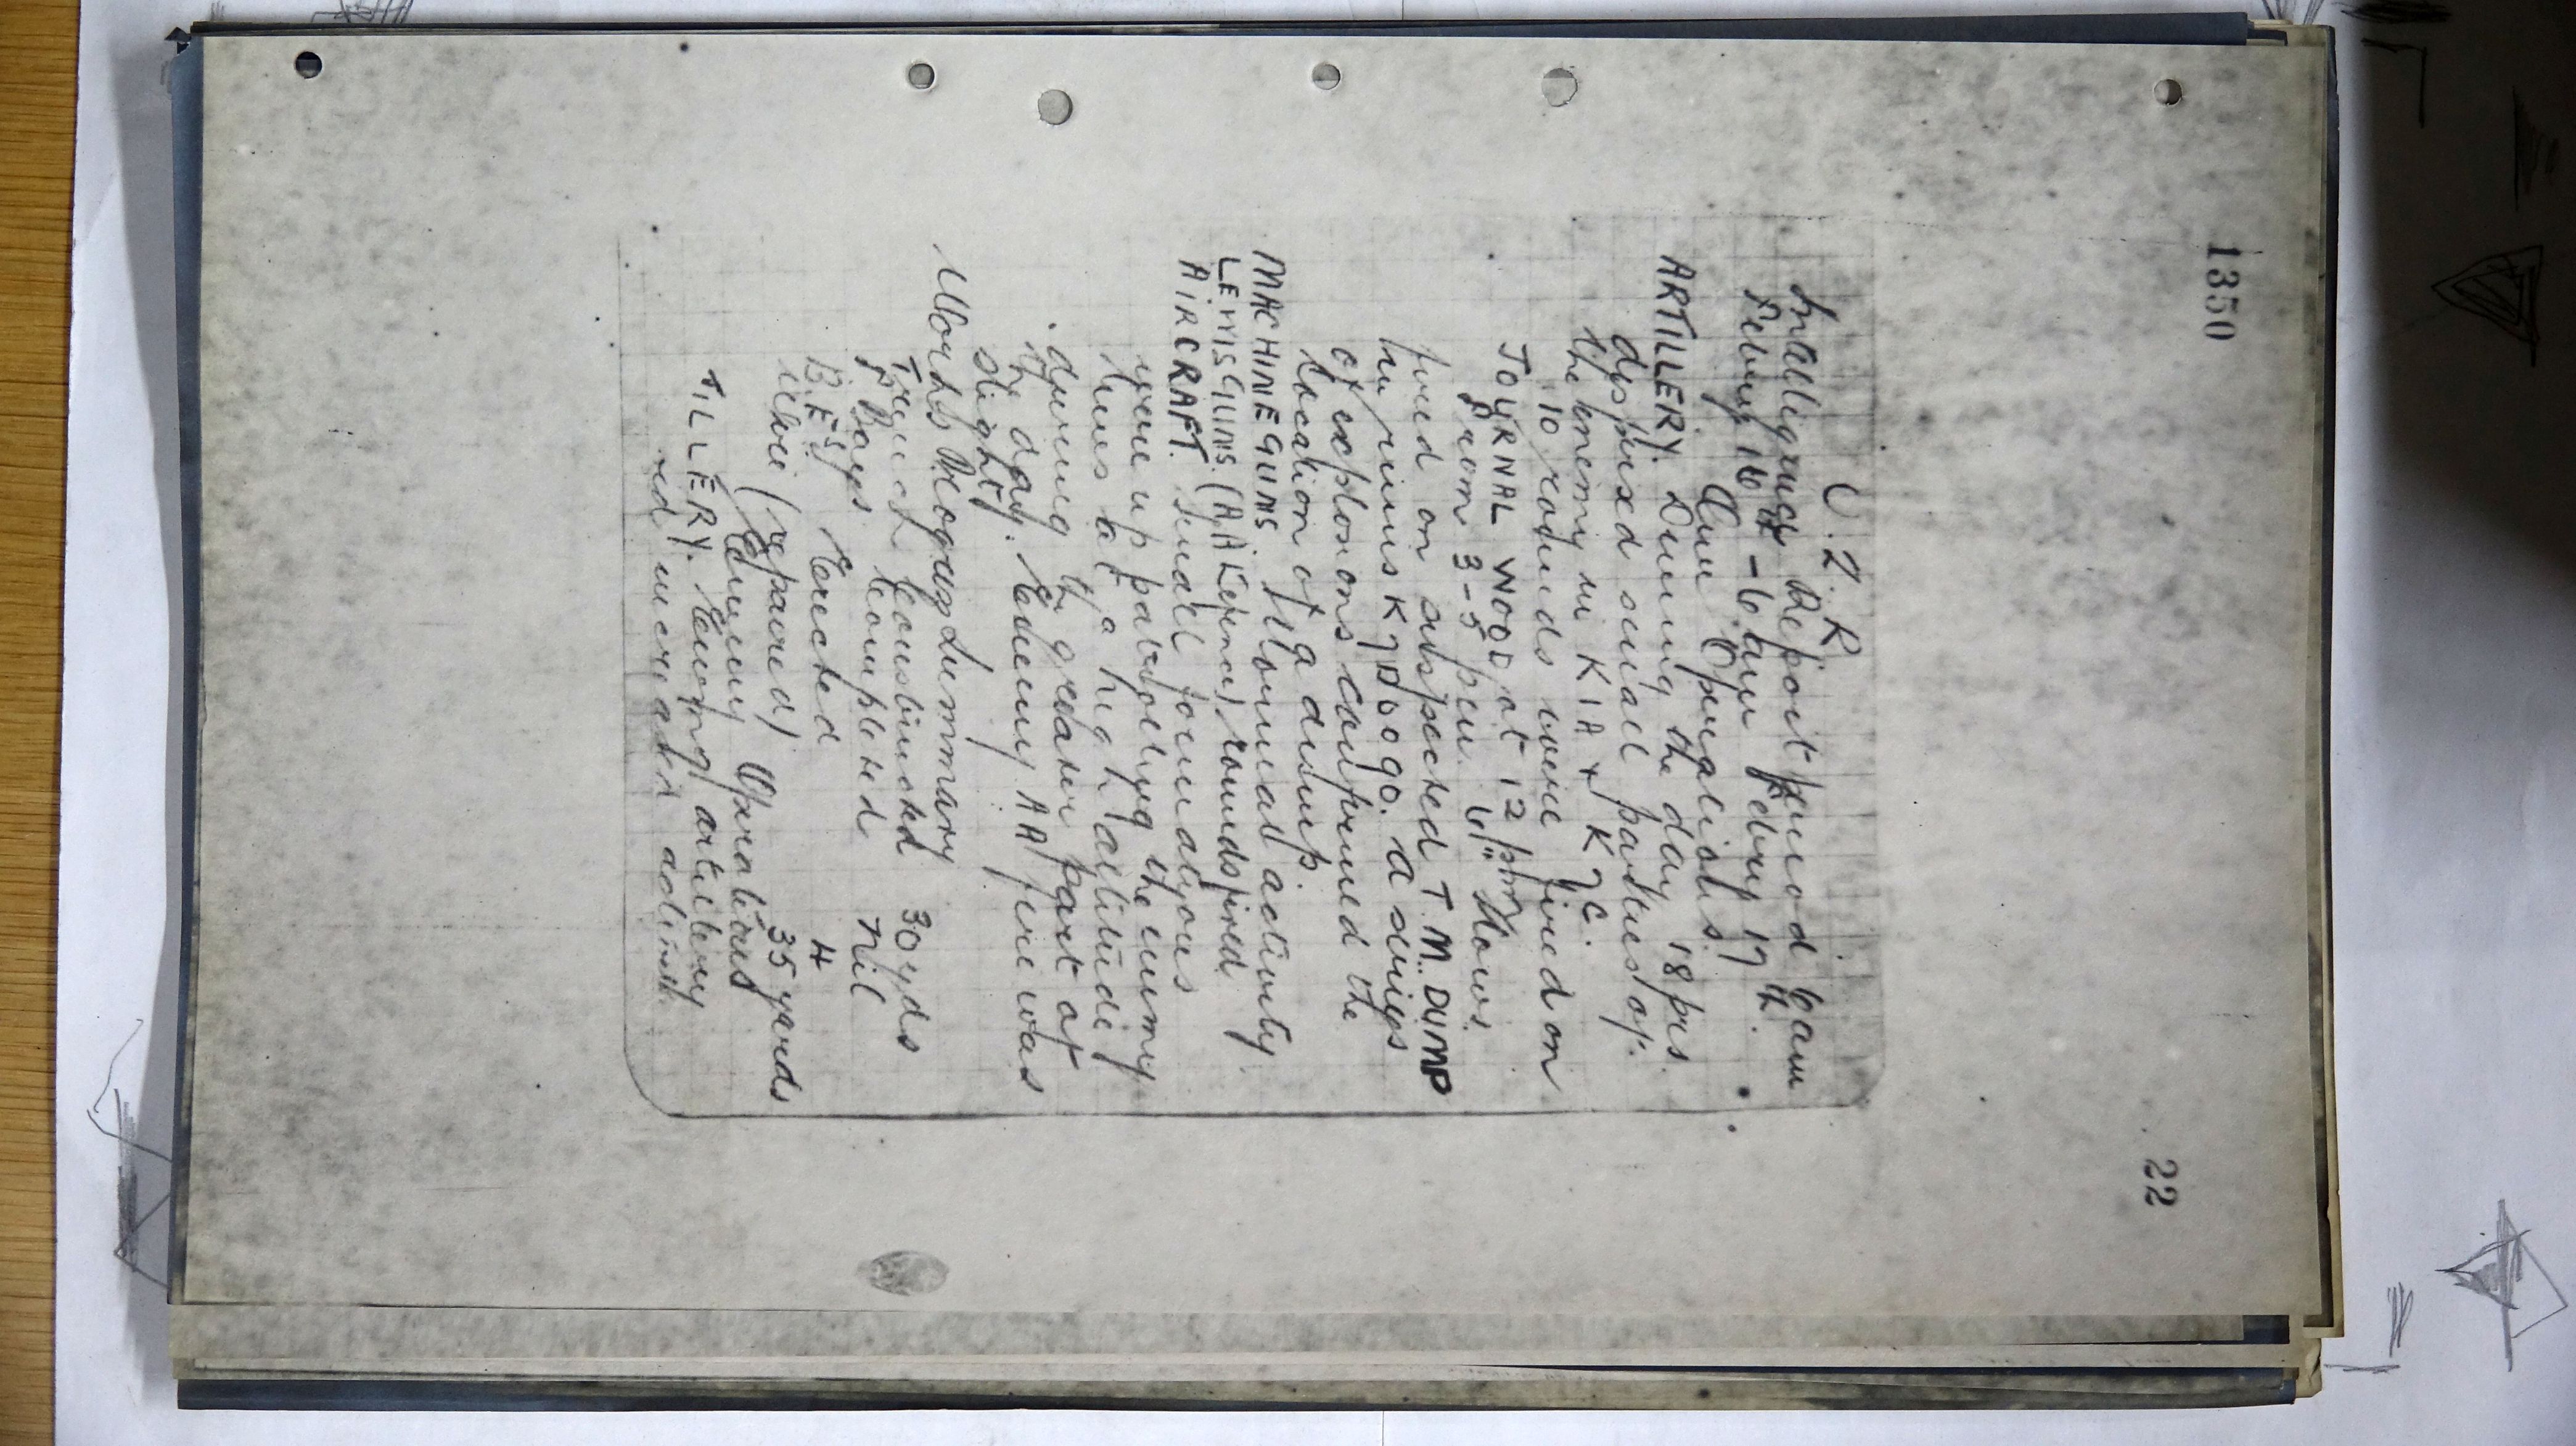 1350
22
C.2.R.
Intelligence Report period 6am
Febry 16th - 6 am Febry 17th.
Our Operations.
ARTILLERY. During the day 18 prs
dispersed small parties of
the enemy in K1A & K7C.
10 rounds were fired on
JOURNAL WOOD at 12 pm
From 3-5 pm 6" Hows.
fired on suspected T.M. DUMP
in ruins K7D00 90. A series
of explosions confirmed the
location of a dump.
MACHINE GUNS Normal activity
LEWIS GUNS. (A.A Defence) rounds fired
AIRCRAFT. Small formations
were up patrolling the enemy
lines at a high altitude
during the greater part of
the day. Enemy AA fire was
slight.
Works Progress Summary
Trench Constructed 30 yds
Bays Completed Nil
Bays Erected 4
Wire (repaired) 35 yards
Enemy Operations
TILLERY. Enemy artillery
increase in activity.